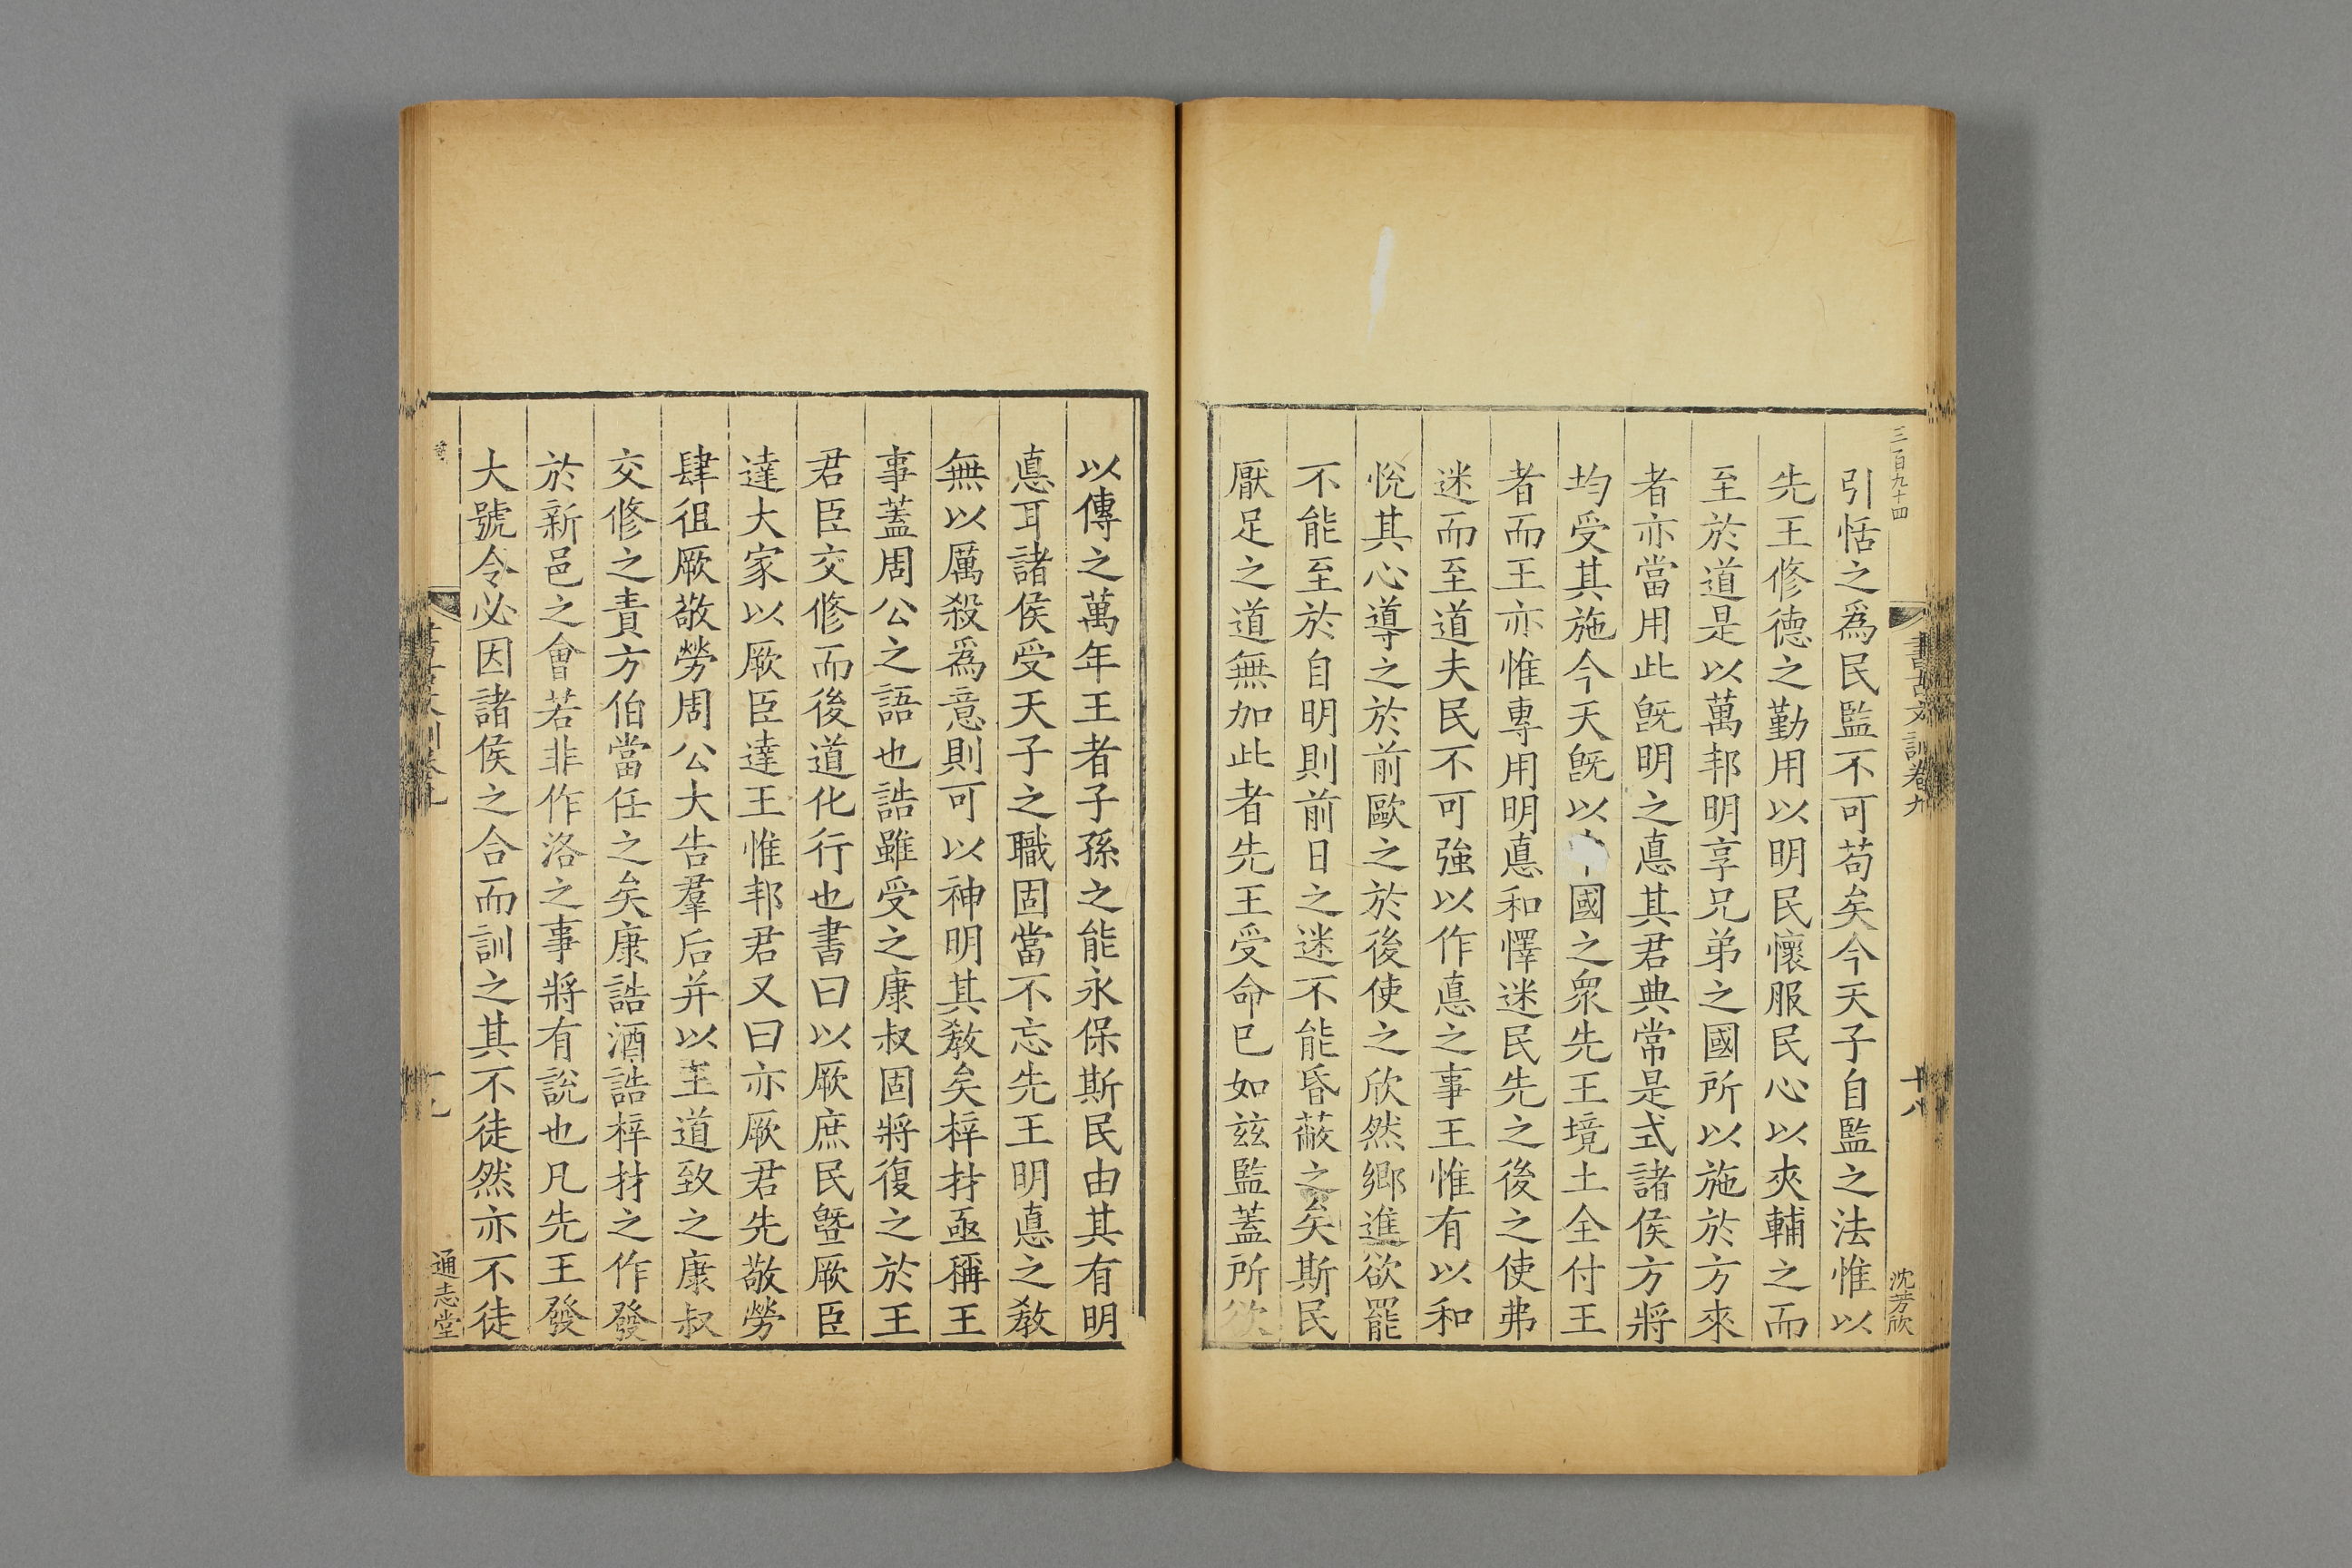 三百九十四
書古文訓卷九
十八
沈芳欣
引恬之爲民監不可苟矣今天子自監之法惟以
先王修德之勤用以明民懷服民心以夾輔之而
至於道是以萬邦明享兄弟之國所以施於方來
者亦當用此旣明之悳其君典常是式諸侯方將
均受其施今天旣以國之衆先王境土全付王
者而王亦惟專用明悳和懌迷民先之後之使弗
迷而至道夫民不可強以作悳之事王惟有以和
悅其心導之於前歐之於後使之欣然鄉進欲罷
不能至於自明則前日之迷不能昏蔽之矣斯民
厭足之道無加此者先王受命已如玆監蓋所欲
以傳之萬年王者子孫之能永保斯民由其有明
悳耳諸侯受天子之職固當不忘先王明悳之敎
無以厲殺爲意則可以神明其敎矣梓材亟稱王
事蓋周公之語也誥雖受之康叔固將復之於王
君臣交修而後道化行也書曰以厥庶民曁厥臣
達大家以厥臣達王惟邦君又曰亦厥君先敬勞
肆徂厥敬勞周公大告羣后并以王道致之康叔
交修之責方伯當任之矣康誥酒誥梓材之作發
於新邑之會若非作洛之事將有說也凡先王發
大號令必因諸侯之合而訓之其不徒然亦不徒
通志堂